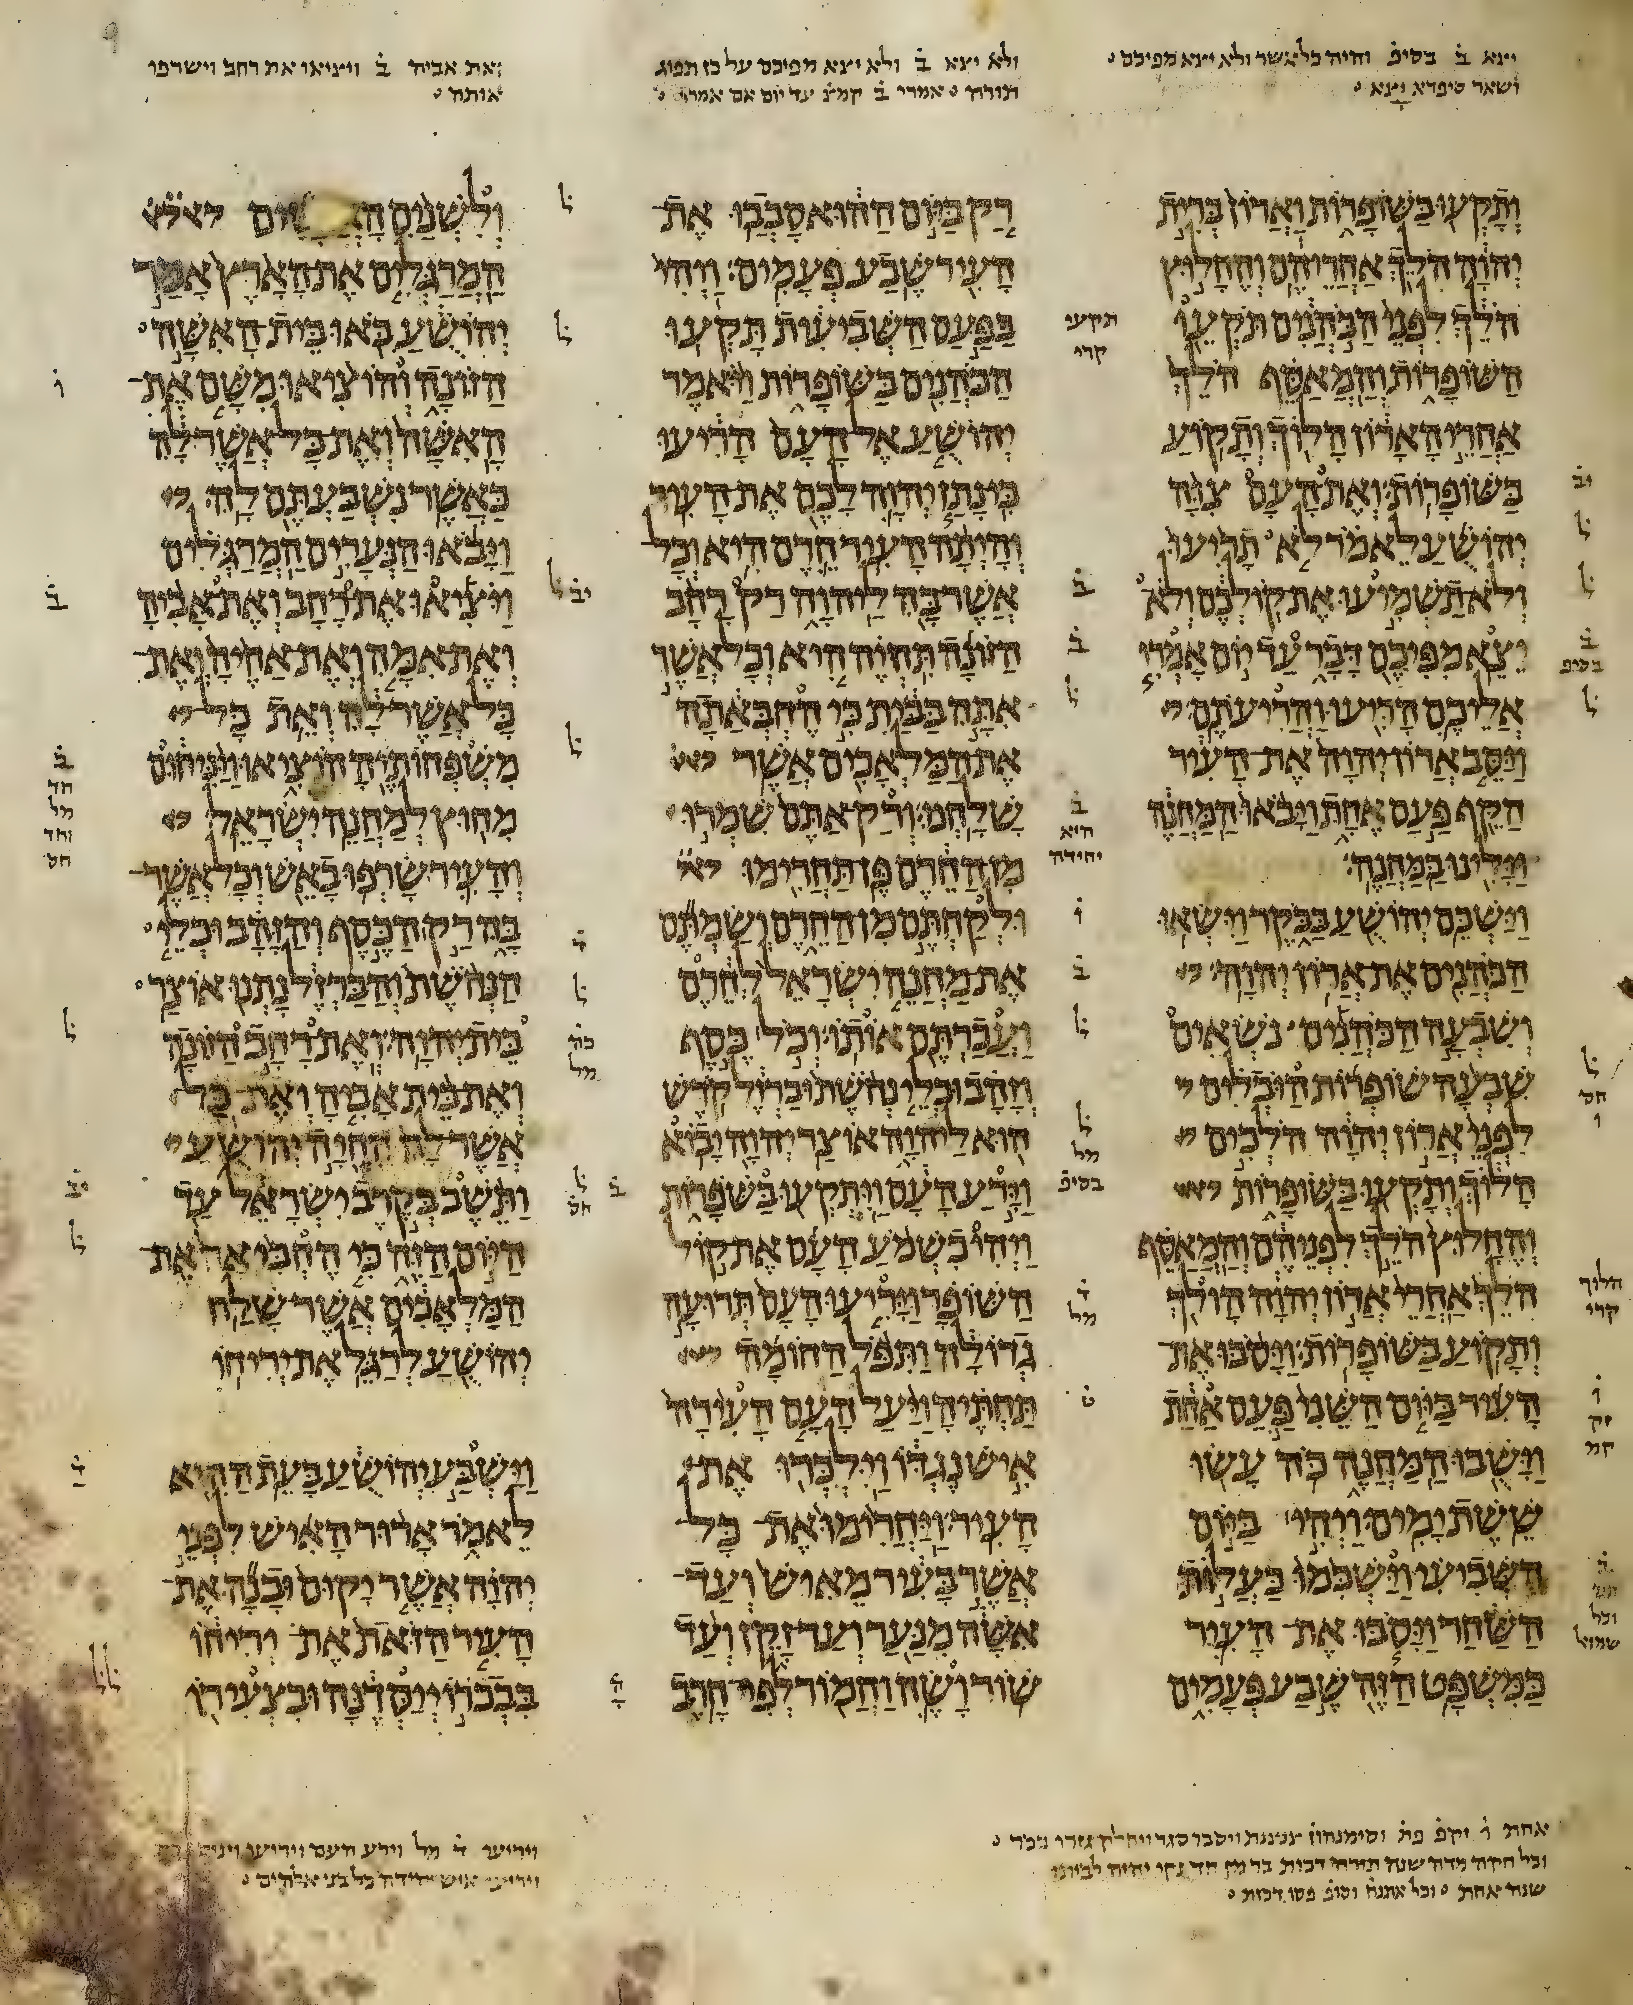 יצא ב בסיפ והיה כל אשר ולא יצא מפיכם
ושאר סיפרא ויצא
ולא יצא ב ולא יצא מפיכם על כן תפוג
תורה אמרי ב קמצ עד יום אם אמרי
ואת אביה ב ויציאו את רחב וישרפו
אותה
ותקעו בשופרות וארון ברית
יהוה הלך אחריהם והחלוץ
הלך לפני הכהנים תקעו
השופרות והמאסף הלך
אחרי הארון הלוך ותקוע
בשופרות ואת העם צוה
יהושע לאמר לא תריעו
ולא תשמיעו את קולכם ולא
יצא מפיכם דבר עד יום אמרי
אליכם הריעו והריעתם
ויסב ארון יהוה את העיר
הקף פעם אחת ויבאו המחנה
וילינו במחנה
וישכם יהושע בבקר וישאו
הכהנים את ארון יהוה
ושבעה הכהנים נשאים
שבעה שופרות היבלים
לפני ארון יהוה הלכים
הלוך ותקעו בשופרות
והחלוץ הלך לפניהם והמאסף
הלך אחרי ארון יהוה הולך
ותקוע בשופרות ויסבו את
העיר ביום השני פעם אחת
וישבו המחנה כה עשו
ששת ימים ויהי ביום
השביעי וישכמו כעלות
השחר ויסבו את העיר
כמשפט הזה שבע פעמים
תקעי
קרי
יב
ל
ל
ב
בסיפ
ל
ל
חס
הלוך
קרי
ו
זק
קמ
וכל
שמואל
רק ביום ההוא סבבו את
העיר שבע פעמים ויהי
בפעם השביעית תקעו
הכהנים בשופרות ויאמר
יהושע אל העם הריעו
כי נתן יהוה לכם את העיר
והיתה העיר חרם היא וכל
אשר בה ליהוה רק רחב
הזונה תחיה היא וכל אשר
אתה בבית כי החבאתה
את המלאכים אשר
שלחנו ורק אתם שמרו
מן החרם פן תחרימו
ולקחתם מן החרם ושמתם
את מחנה ישראל לחרם
ועכרתם אותו וכל כסף
וזהב וכלי נחשת וברזל קדש
הוא ליהוה אוצר יהוה יבוא
וירע העם ויתקעו בשפרות
ויהי כשמע העם את קול
השופר ויריעו העם תרועה
גדולה ותפל החומה
תחתיה ויעל העם העירה
איש נגדו וילכדו את
העיר ויחרימו את כל
אשר בעיר מאיש ועד
אשה מנער ועד זקן ועד
שור ושה וחמור לפי חרב
ב
ב
ל
ב
היא
יחידה
ו
ב
ל
ל
מל
בסיפ
ד
מל
ולשנים האנשים
המרגלים את הארץ אמר
יהושע באו בית האשה
הזונה והוציאו משם את
האשה ואת כל אשר לה
כאשר נשבעתם לה
ויבאו הנערים המרגלים
ויציאו את רחב ואת אביה
ואת אמה ואת אחיה ואת
כל אשר לה ואת כל
משפחותיה הוציאו ויניחום
מחוץ למחנה ישראל
והעיר שרפו באש וכל אשר
בה רק הכסף והזהב וכלי
הנחשת והברזל נתנו אוצר
בית יהוה ואת רחב הזונה
ואת בית אביה ואת כל
אשר לה החיה יהושע
ותשב בקרב ישראל עד
היום הזה כי החביאה את
המלאכים אשר שלח
יהושע לרגל את יריחו
וישבע יהושע בעת ההיא
לאמר ארור האיש לפני
יהוה אשר יקום ובנה את
העיר הזאת את יריחו
בבכרו ייסדנה ובצעירו
ל
ל
יב
ל
ל
מל
ל
חס
ב
ו
ב
ב
חד
מל
וחד
חס
ל
יב
ל
ד
ל ל
אחת ו זקפ פת וסימנהון
שנה אחת וכל אתנח וסופ פסו דכות
ויריעו ד מל וירע העם ויריעו